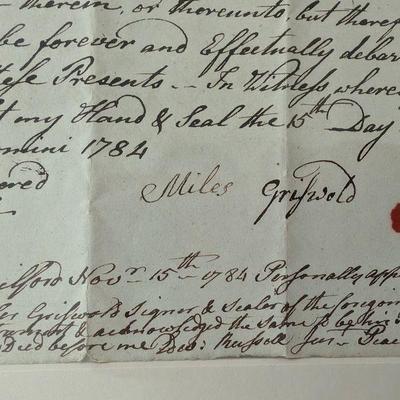 therein, or thereunto, but theref
be forever and Effectually debar
these Presents -- In Witness where
t my Hand & Seal the 15th Day
omini 1784
ered
Miles Griswold
ilford Novr 15th 1784 Personally app
les Griswold Signer & Sealer of the foregoin
rument & acknowledged the Same to be his
Deed before me Russell Jus- Peac